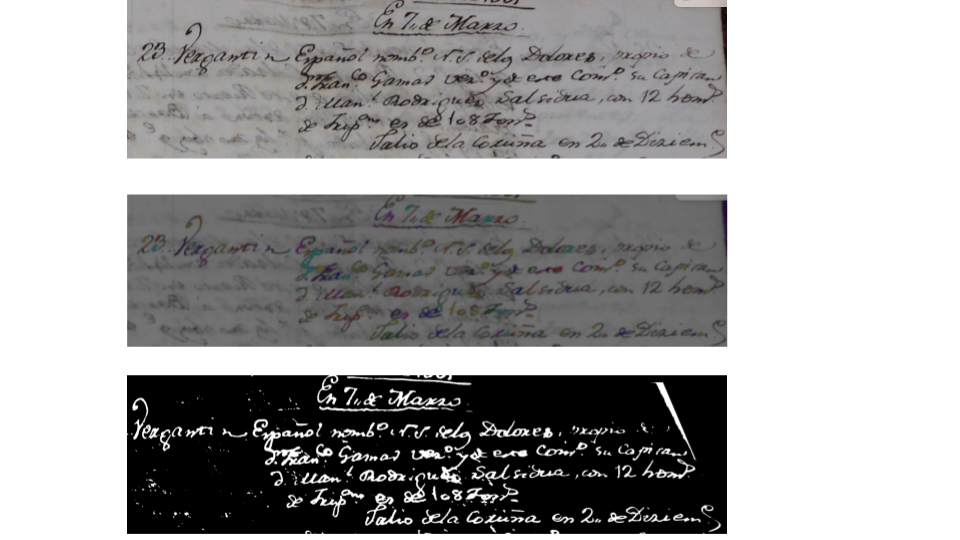 En 7,, de Marzo
23. Vergantin Español nomb.º N. S. dela Dolores, propio de
d. Fran.co Gamas vez.º y de este Com.º su Capitan
d. Man.l Rodriguez Salsidua, con 12 homs
de Trip.on es de 108 Ton.s
Salio dela Coruña en 2,, de Diziem
En 7,, de Marzo
23. Vergantin Español nomb.º N. S. dela Dolores, propio de
d. Fran.co Gamas vez.º y de este Com.º su Capitan
d. Man.l Rodriguez Salsidua, con 12 homs
de Trip.on es de 108 Ton.s
Salio dela Coruña en 2,, de Diziem
En 7,, de Marzo
Vergantin Español nomb.º N. S. dela Dolores, propio de
d. Fran.co Gamas vez.º y de este Com.º su Capitan
d. Man.l Rodriguez Salsidua, con 12 homs
de Trip.on es de 108 Ton.s
Salio dela Coruña en 2,, de Diziem